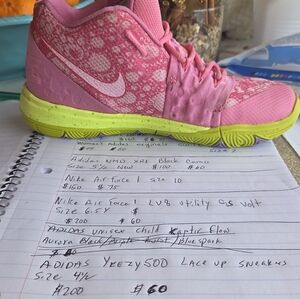 Women's Adidas originals
Adidas NMD XR1 Black Camo
Size 5½ New $100 $60
Nike Air Force 1 Size 10
$150 $75
Nike Air Force 1 LV8 Utility GS Volt
Size 6.5Y $
$200 $60
ADIDAS unisex child
Aurora Black/Purple
ADIDAS YEEZY 500 Lace up sneakers
Size 4½
$200 $60